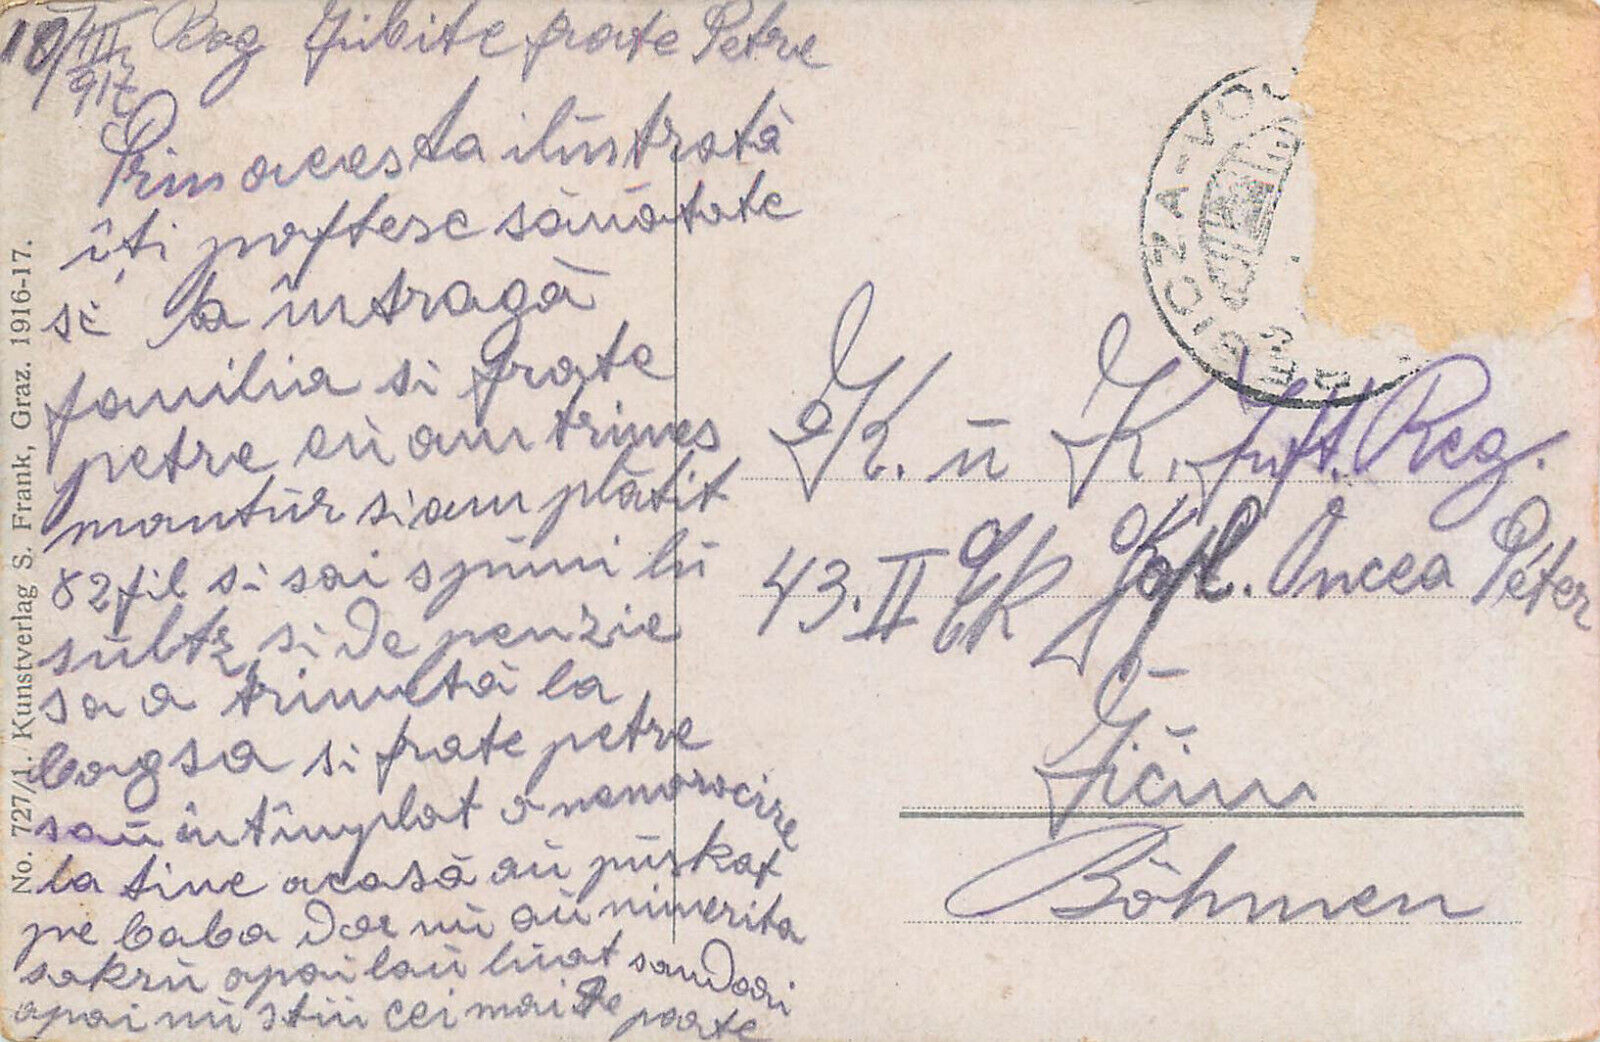 18/III 917 Bog Iubite frate Petre
Prin aceasta ilustrată
îți poftesc sănătate
si la intragă
familia si frate
petre eu am trimes
mantur si am plătit
82 fil si sai spuni lu
sultz si de penzie
sa a trimetă la
bogsa si frate petre
sau intimplat o nenorocire
la tine acasă au puskat
pe baba dar nu au nimerita
sakru apoi lau luat sandari
apoi nu stiu cei mai de parte
No. 727/1. Kunstverlag S. Frank, Graz. 1916-17.
GICZA-VO
K. ü K. Inft. Reg.
43. II Jncea Péter
Jičin
Böhmen